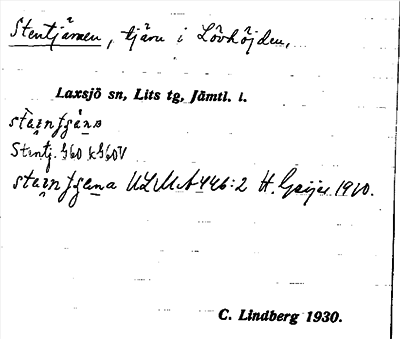 Stentjärnen, tjärn i Lövhöjden.
Laxsjö sn, Lits tg, Jämtl. l.
Stentj. 960 k 960V
ULMA 446:2 H. Geijer 1910.
C. Lindberg 1930.